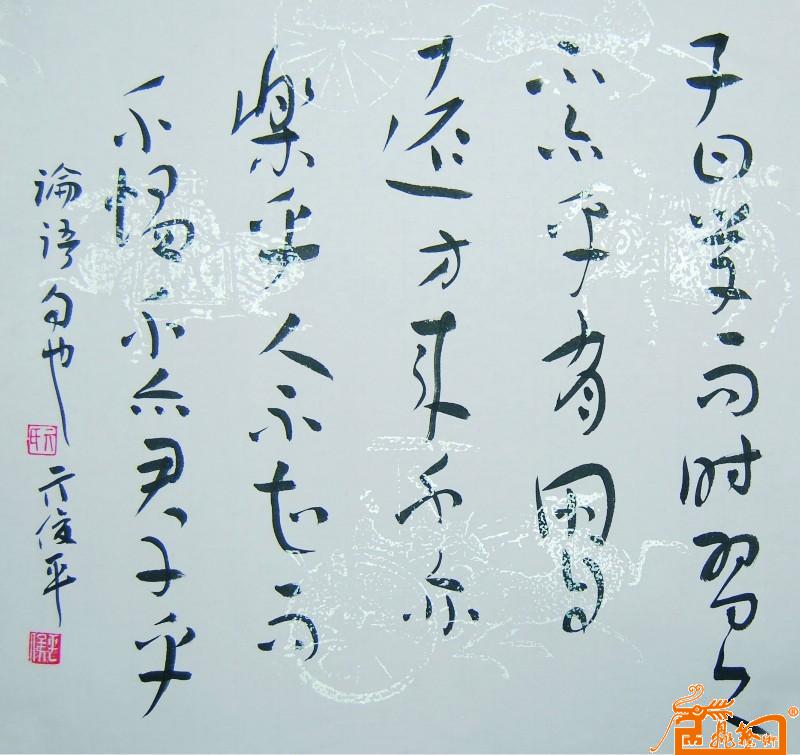 子曰學而时習之
不亦乎有朋自
遠方来不亦
樂乎人不知而
不愠不亦君子乎
論语句也 亓俊平